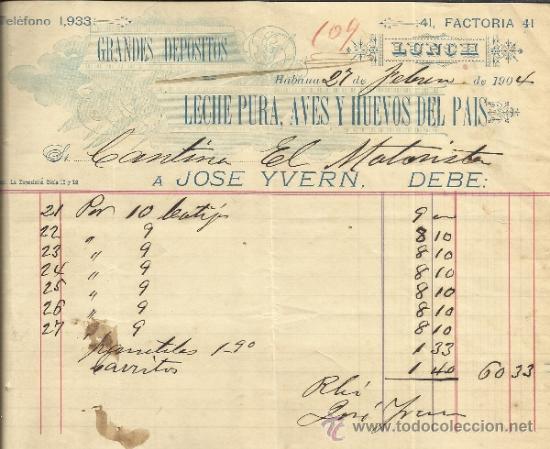 Teléfono 1,933
41, FACTORIA 41
109
GRANDES DEPOSITOS
LUNCH
Habana 27 de febrero de 1904
LECHE PURA, AVES Y HUEVOS DEL PAIS
Sr. Cantina El Motorista
A JOSE YVERN, DEBE:
21 Por 10 botijs 9
22 " 9 8 10
23 " 9 8 10
24 " 9 8 10
25 " 9 8 10
26 " 9 8 10
27 " 9 8 10
paneteles 1.90 1 33
1 40 60 33
Rbi
José Yvern
www.todocoleccion.net
todocoleccion